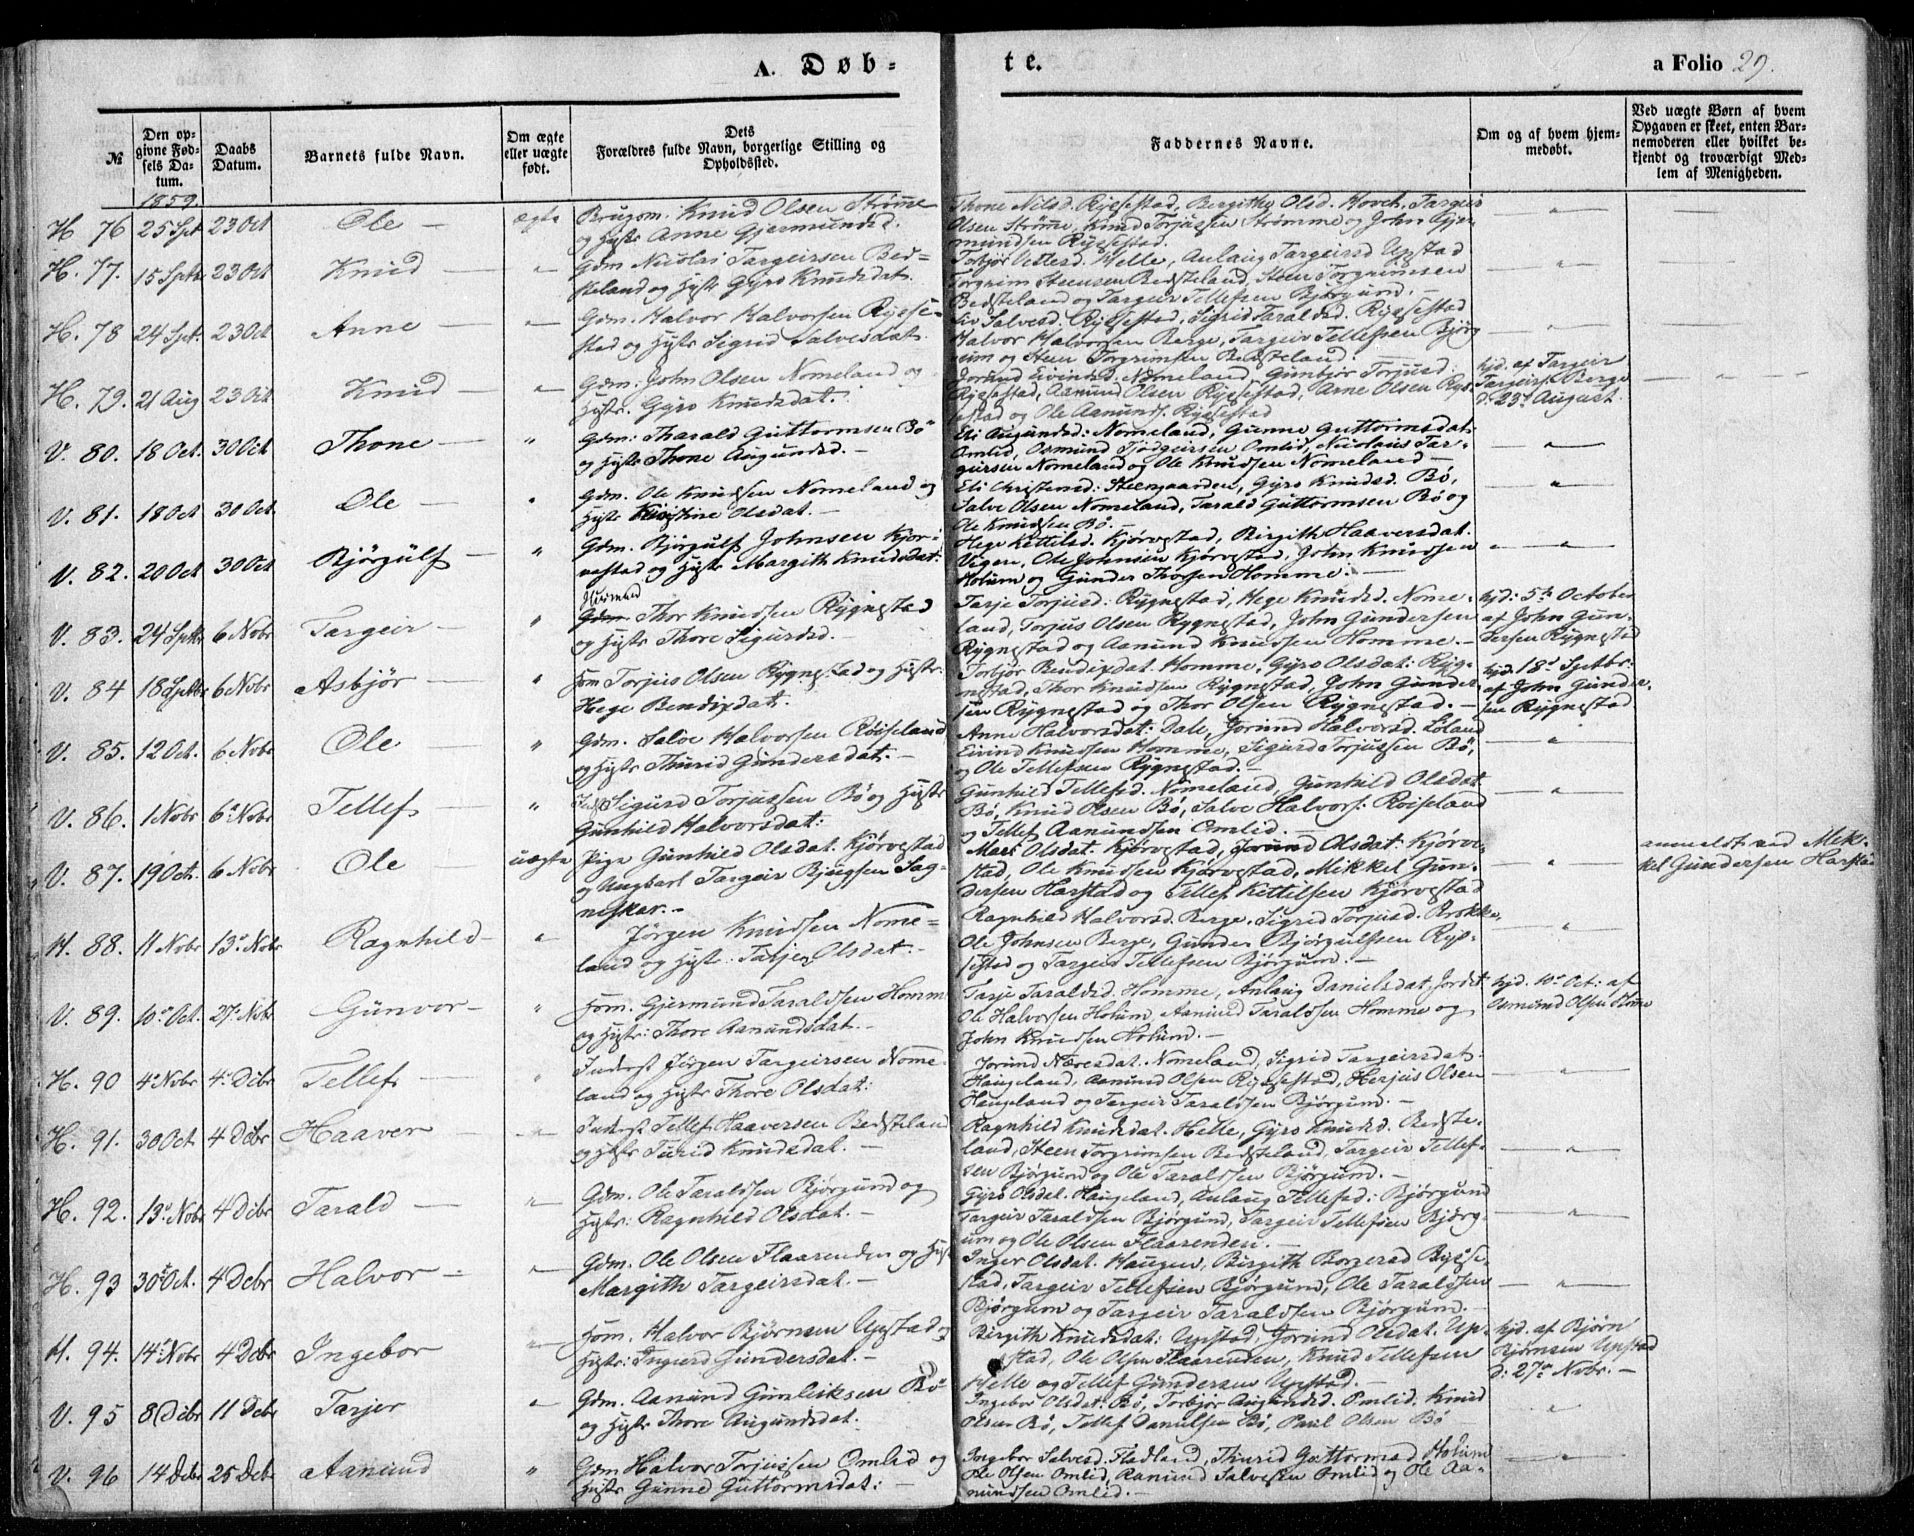 A. Døb-
te.
a Folio 29.
№
Den op-
givne Fød-
sels Da-
tum.
Daabs
Datum.
Barnets fulde Navn.
Om ægte
eller uægte
født.
Dets
Forældres fulde Navn, borgerlige Stilling og
Opholdssted.
Faddernes Navne.
Om og af hvem hjem-
medøbt.
Ved uægte Børn af hvem
Opgaven er skeet, enten Bar-
nemoderen eller hvilket be-
kjendt og troværdigt Med-
lem af Menigheden.
1859.
H 76 25 Spt 23 Oct Ole — ægte
Brugsm. Knud Olsen Strømme
og Hustr Anne Gjermundsd.
Thone Nilsd. Rysestad, Bergithe Olsd. Hovet, Targeir
Olsen Strømme, Knud Torjussen Strømme og John Gjer-
mundsen Rysestad.
H. 77. 15 Sptr 23 Oct Knud — "
Gdm Nicolai Targeirsen Bed-
steland og Hustr Gyro Knudsdat.
Torbjør Vetlesd. Helle, Anlaug Targeirsd Upstad
Torgrim Steensen Bedsteland, Steen Torgrimsen
Bedsteland og Targeir Tellefsen Bjørgum. —
H. 78 24 Spt. 23 Oct Anne — "
Gdm. Halvor Halvorsen Rysse-
stad og Hustr Sigrid Salvesdat.
Liv Salvesd. Ryssestad, Sigrid Taraldsd. Ryssestad
Halvor Halvorsen Berge, Targeir Tellefsen Bjørg
um og Steen Torgrimsen Bedsteland.
H. 79. 21 Aug 23 Oct Knud — "
Gdm. John Olsen Nomeland og
Hustr. Gyro Knudsdat.
Jorund Eivindsd. Nomeland, Gunbjør Torjusd.
Ryssestad, Aanund Olsen Ryssestad, Arne Olsen Rys-
sestad og Ole Aanunds. Ryssestad
hjd. af Targeir
Targeirs. Berge
d. 23d August.
V. 80. 18 Oct. 30 Oct Thone — "
Gdm: Tharald Guttormsen Bö
og Hustr Thone Augundsd. —
Eli Augundsd: Nomeland, Gunne Guttormsdat:
Omlid, Osmund Tjødgeirsen Omlid, Nicolaus Tar-
geirsen Nomeland og Ole Knudsen Nomeland —
V. 81. 18 Oct 30 Oct. Ole — "
Gdm. Ole Knudsen Nomeland og
Hustr Kristine Olsdat. —
Eli Christensd: Steengaarden, Gyro Knudsd. Bø,
Salve Olsen Nomeland, Tarald Guttormsen Bø og
Ole Knudsen Bø. —
V. 82. 20 Oct 30 Oct Bjørgulf — "
Gdm. Bjørgulf Johnsen Kjør-
vestad og Hustr Margith Knudsdat:
Hege Kettilsd. Kjørvestad, Birgith Haaversdat.
Viger, Ole Johnsen Kjørvestad, John Knudsen
Holum og Gunder Thorsen Homme. —
V. 83. 24 Sptbr 6 Nobr Targeir — "
Huusmand
Gdm. Thor Knudsen Rygnestad
og Hustr Thore Sigurdsd.
Tarje Torjusd: Rygnestad, Hege Knudsd. Nome-
land, Torjus Olsen Rygnestad, John Gundersen
Rygnestad og Aanund Knudsen Homme. —
hjd: 5te October
af John Gun-
dersen Rygnestad
V. 84 18 Sptbr 6 Nobr Asbjør — "
Hom Torjus Olsen Rygnestad og Hustr:
Hege Bendixdat.
Torbjør Bendixdat. Homme, Gyro Olsdat: Ryg-
nestad, Thor Knudsen Rygnestad, John Gunder-
sen Rygnestad og Thor Olsen Rygnestad. —
hjd. 18d Sptbr:
af John Gunder-
sen Rygnestad
V. 85. 12 Oct. 6 Nobr Ole — "
Gdm. Salve Halvorsen Röiseland
og Hustr Thurid Gundersdat. —
Anne Halvorsdat: Dale, Jorund Halvorsd. Löland
Eivind Knudsen Homme, Sigurd Torjussen Bö,
og Ole Tellefsen Rygnestad. —
V. 86. 1 Nobr 6 Nobr Tellef — "
Sigurd Torjussen Bö og Hustr
Gunhild Halvorsdat:
Gunhild Tellefsd. Nomeland, Gunhild Olsdat
Bö, Knud Olsen Bö, Salve Halvors: Röiseland
og Tellef Aanundsen Omlid. —
V. 87. 19 Oct. 6 Nobr Ole — uægte
Pige Gunhild Olsdat. Kjørvestad
og Ungkarl Targeir Bjugsen Sag-
neskar. —
Mari Olsdat. Kjørvestad, Jorund Olsdat: Kjørve-
stad, Ole Knudsen Kjørvestad, Mikkel Gun-
dersen Harstad og Tellef Kettilsen Kjørvestad
anmeldt ved Mik-
kel Gundersen Harstad
H. 88. 11 Nobr 13 Nobr Ragnhild — "
Jörgen Knudsen Nome-
land og Hustr: Tarjer Olsdat. —
Ragnhild Halvorsd. Berge, Sigrid Torjusd. Brokke,
Ole Johnsen Berge, Gunder Bjørgulfsen Rys-
sestad og Targeir Tellefsen Bjørgum. —
V. 89. 10 Oct. 27 Nobr Gunvor — "
Hom. Gjermund Taraldsen Homme
og Hustr: Thore Aanundsdat. —
Tarje Taraldsd. Homme, Anlaug Danielsdat, Jordet
Ole Halvorsen Holum, Aanund Taraldsen Homme og
John Knudsen Holum. —
hjd. 10d Oct: af
Osmund Olsen Homme
H. 90 4 Nobr 4 Dcbr Tellef — "
Inderst Jörgen Targeirsen Nome-
land og Hustr Thore Olsdat:
Jorund Næresdat. Nomeland, Sigrid Targeirsdat.
Haugeland, Aanund Olsen Ryssestad, Herjus Olsen
Haugeland og Targeir Taraldsen Bjørgum. —
H. 91. 30 Oct. 4 Dcbr Haaver — "
Inderst Tellef Haaversen Bedsteland
og Hustr Turid Knudsdat. —
Ragnhild Knudsdat. Helle, Gyro Knudsd. Bedste-
land, Steen Torgrimsen Bedsteland, Targeir Tellef-
sen Bjørgum og Ole Taraldsen Bjørgum. —
H. 92. 13 Nobr 4 Dcbr Tarald — "
Gdm. Ole Taraldsen Bjørgum og
Hustr: Ragnhild Olsdat. —
Gyro Olsdat. Haugeland, Anlaug Tellefsd: Bjørgum
Targeir Taraldsen Bjørgum, Targeir Tellefsen Bjørg-
um og Ole Olsen Flaarenden. —
H. 93 30 Oct. 4 Dcbr Halvor — "
Gdm. Ole Olsen Flaarenden og Hustr
Margith Targeirsdat. —
Inger Olsdat. Haugen, Birgith Borgersd Rysse-
stad, Targeir Tellefsen Bjørgum, Ole Taraldsen
Bjørgum og Targeir Taraldsen Bjørgum. —
H. 94. 14 Nobr 4 Dcbr Ingebor "
Hom. Halvor Bjørnsen Upstad og
Hustr: Ingierd Gundersdat. —
Birgith Knudsdat: Upstad, Jorund Olsdat. Up-
stad, Ole Olsen Flaarenden, Knud Tellefsen
Helle og Tellef Gundersen Upstad. —
hjd. af Bjørn
Bjørnsen Upstad
d: 27de Nobr. —
V. 95 8 Dcbr 11 Dcbr Tarjer "
Gdm. Aanund Gunleiksen Bö
og Hustr Thore Augundsdat.
Ingebor Olsdat. Bø, Torbjør Augundsd. Omlid, Knud
Olsen Bø, Tellef Danielsen Bø, Paul Olsen Bø
V. 96 14 Dcbr 25 Dcbr Aanund "
Gdm Halvor Torjussen Omlid og
Hustr Gunne Guttormsdat: —
Ingebor Salvesd. Fladland, Thurid Guttormsd, Holum
Ole Olsen Omlid, Aanund Salvesen Omlid og Ole Aa-
nundsen Omlid. —